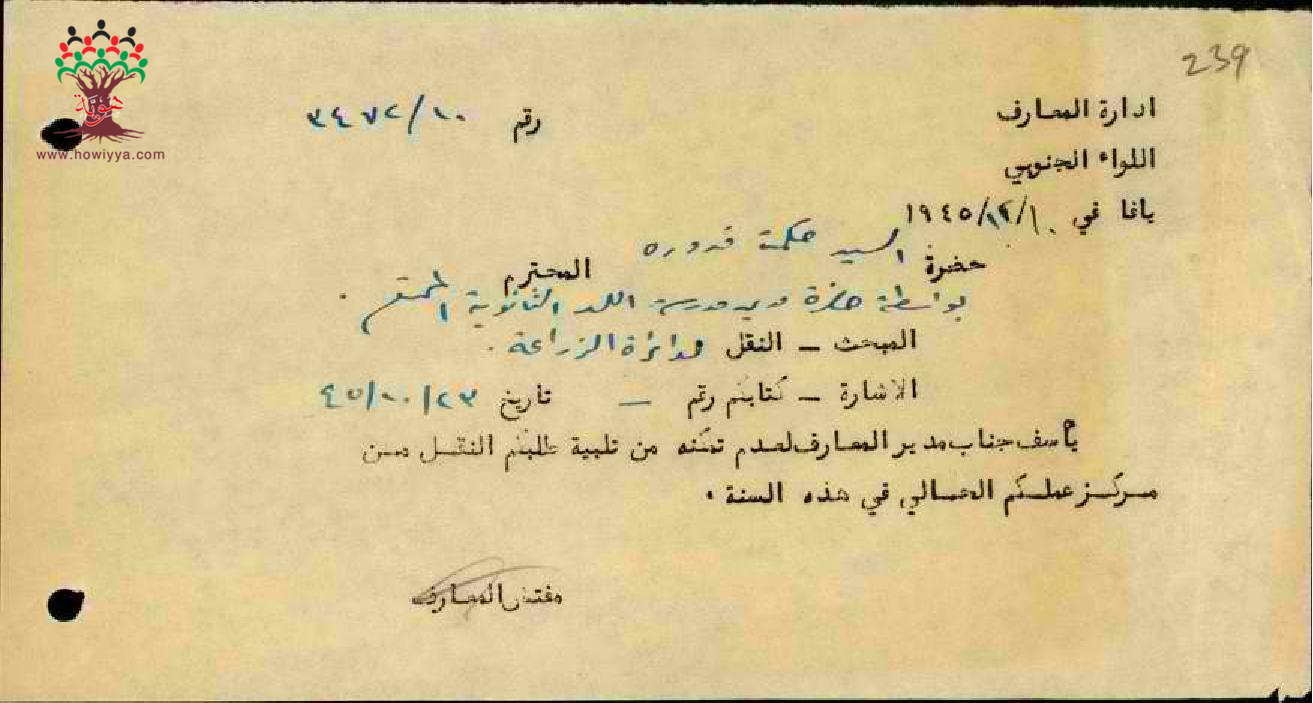 239
هوية
www.howiyya.com
ادارة المعارف
رقم ٣٤٧٢/١٠
اللواء الجنوبي
يافا في ١٩٤٥/١٢/١٠
حضرة السيد حكمة قدوره المحترم
بواسطة حضرة مدير مدرسة اللد الثانوية المحترم .
المبحث – النقل لدائرة الزراعة .
الاشارة – كتابكم رقم — تاريخ ٤٥/١٠/٢٣
يأسف جناب مدير المعارف لعدم تمكنه من تلبية طلبكم النقل من
مركز عملكم الحالي في هذه السنة .
مفتش المعارف